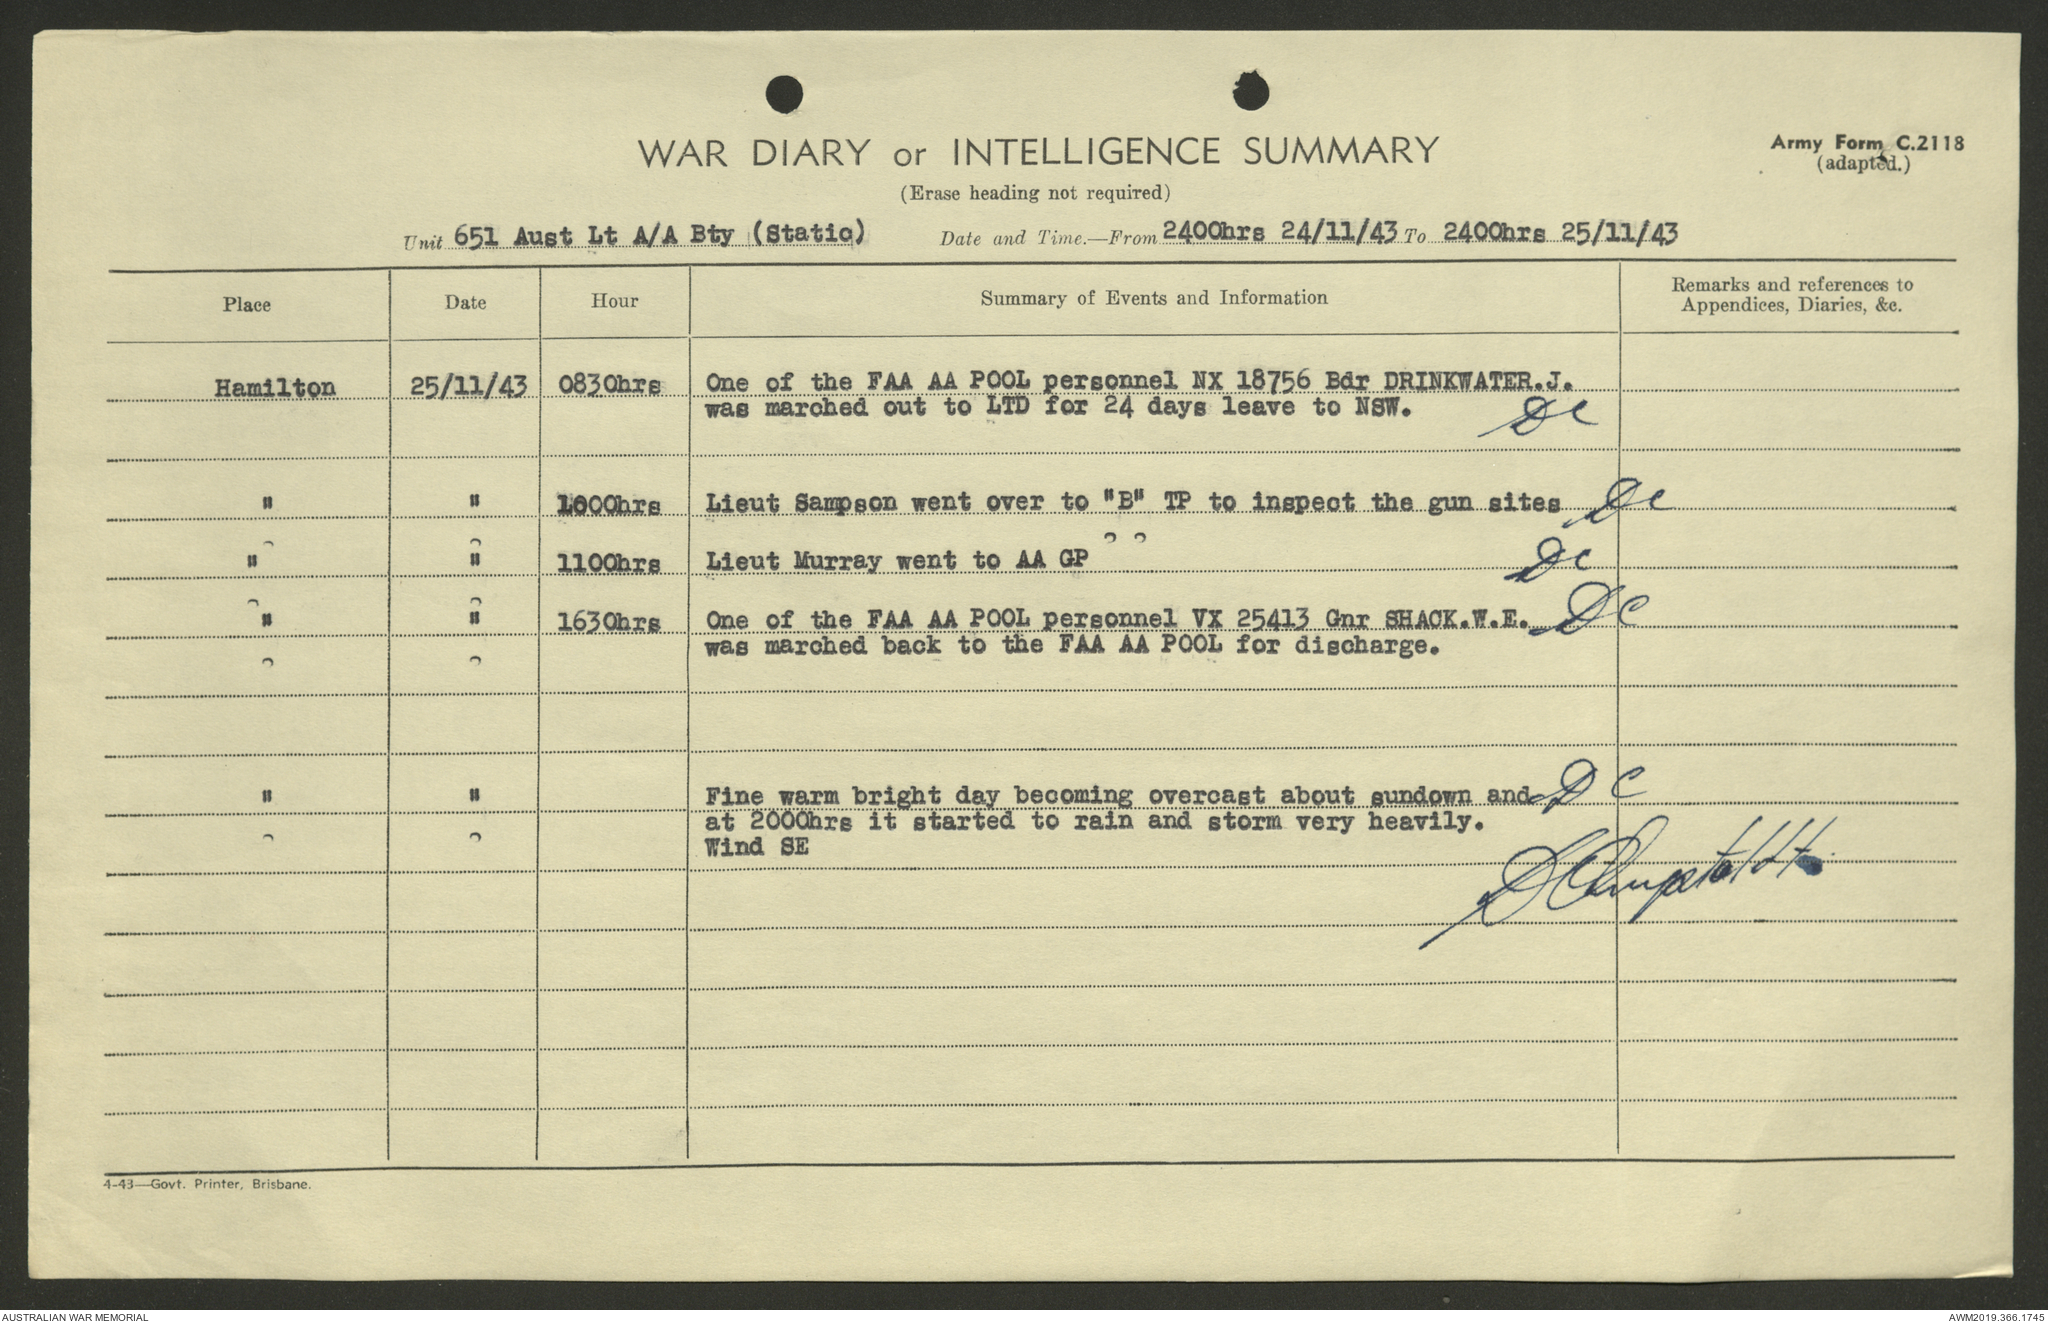 WAR DIARY or INTELLIGENCE SUMMARY
Army Form C.2118
(adapted.)
(Erase heading not required)
Unit 651 Aust Lt A/A Bty (Static) Date and Time.—From 2400hrs 24/11/43 To 2400hrs 25/11/43
Place Date Hour Summary of Events and Information Remarks and references to Appendices, Diaries, &c.
Hamilton 25/11/43 0830hrs One of the FAA AA POOL personnel NX 18756 Bdr DRINKWATER.J.
was marched out to LTD for 24 days leave to NSW. DC
" " 1000hrs Lieut Sampson went over to "B" TP to inspect the gun sites DC
" " 1100hrs Lieut Murray went to AA GP DC
" " 1630hrs One of the FAA AA POOL personnel VX 25413 Gnr SHACK.W.E. DC
was marched back to the FAA AA POOL for discharge.
" " Fine warm bright day becoming overcast about sundown and DC
at 2000hrs it started to rain and storm very heavily.
Wind SE
4-43—Govt. Printer, Brisbane.
AUSTRALIAN WAR MEMORIAL
AWM2019.366.1745